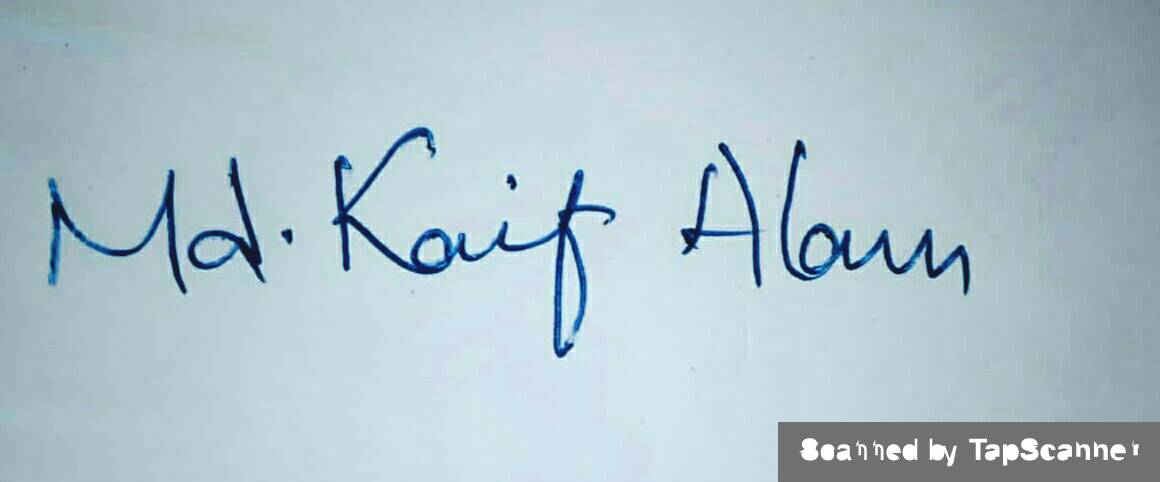 Md. Kaif Alam
Scanned by TapScanner